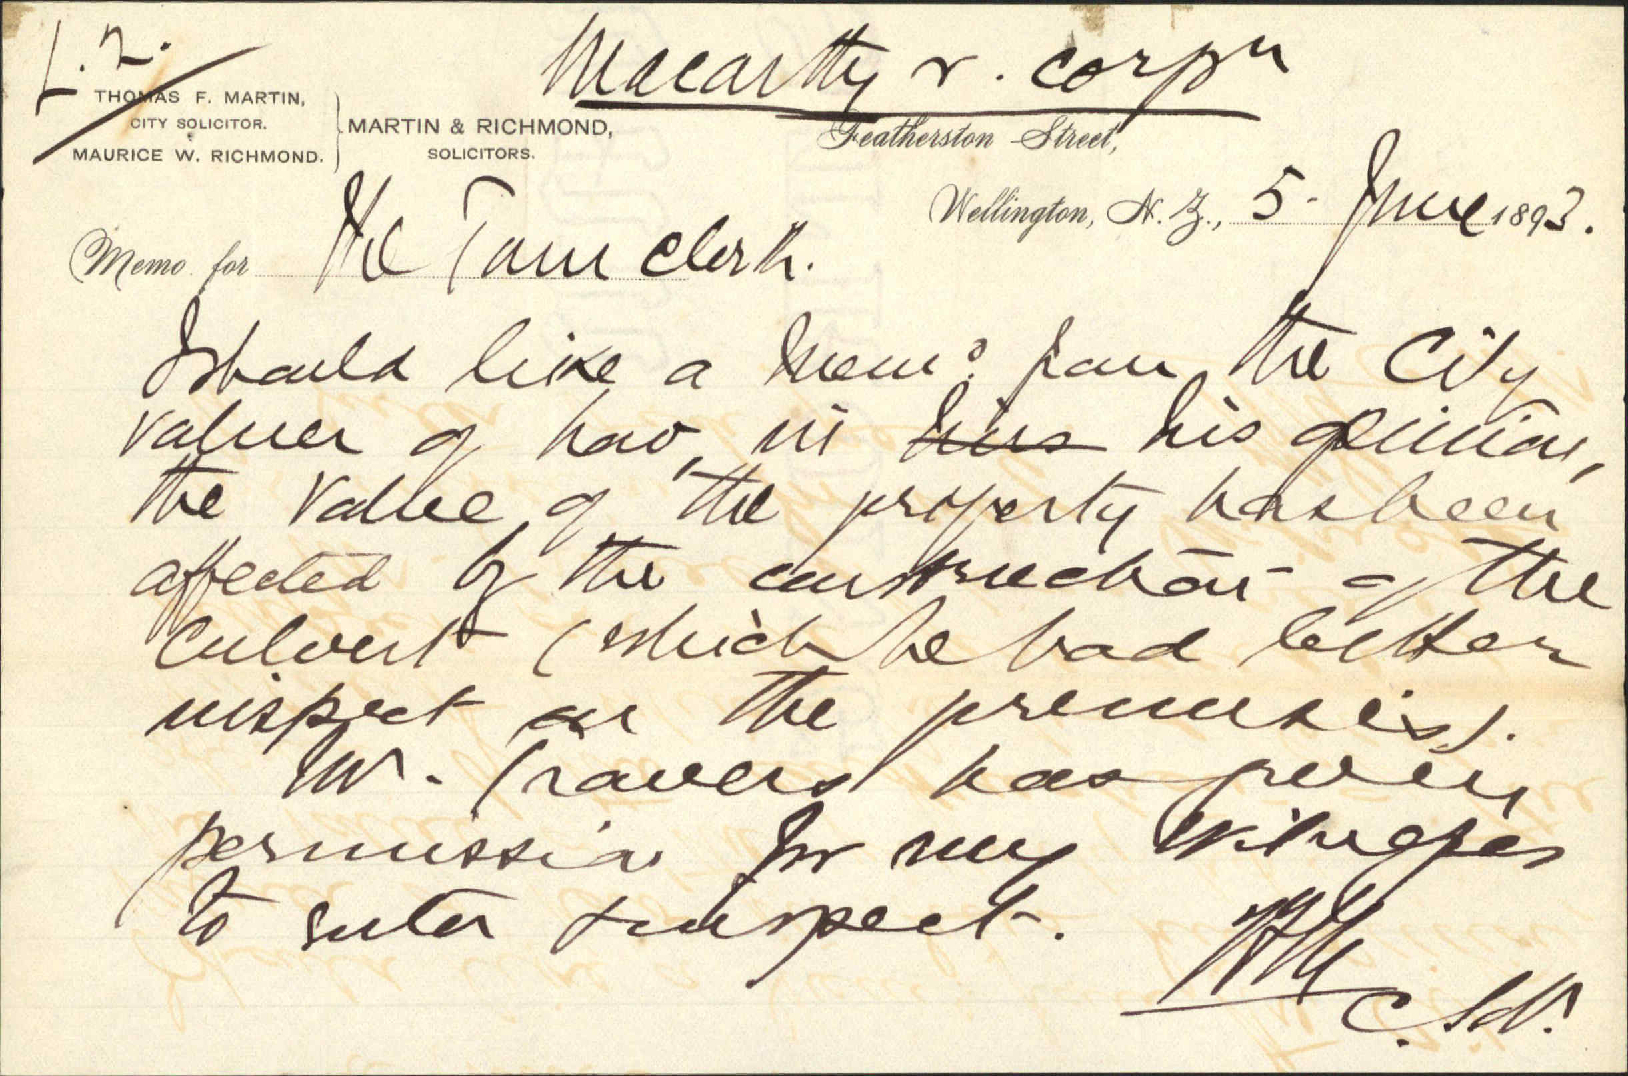 L. 2.
Macarthy v. Corpn
THOMAS F. MARTIN,
CITY SOLICITOR.
MAURICE W. RICHMOND.
MARTIN & RICHMOND,
SOLICITORS.
Featherston Street,
Wellington, N.Z., 5 June 1893.
Memo for The Town Clerk.
I should like a memo: from the City
Valuer of how, in his opinion,
the value of the property has been
affected by the construction of the
culvert (which he had better
inspect on the premises).
Mr. Travers has given
permission for my witnesses
to enter & inspect.
TFM
C. Solr.